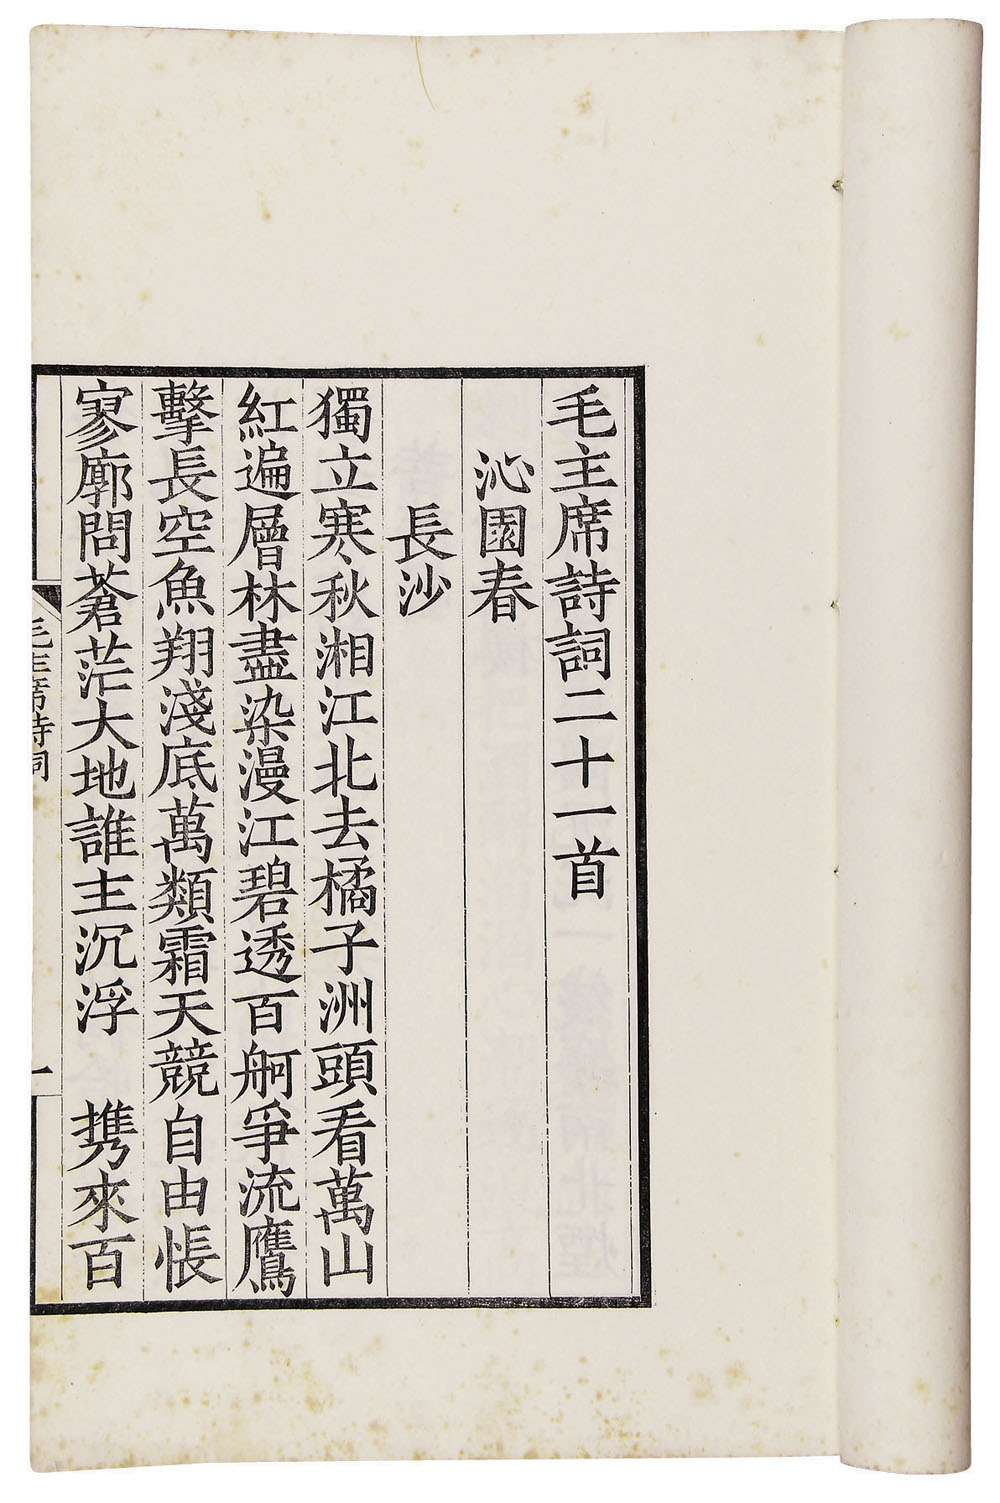 毛主席詩詞二十一首
沁園春
長沙
獨立寒秋湘江北去橘子洲頭看萬山
紅遍層林盡染漫江碧透百舸爭流鷹
擊長空魚翔淺底萬類霜天競自由悵
寥廓問蒼茫大地誰主沉浮　携來百
毛主席詩詞
一